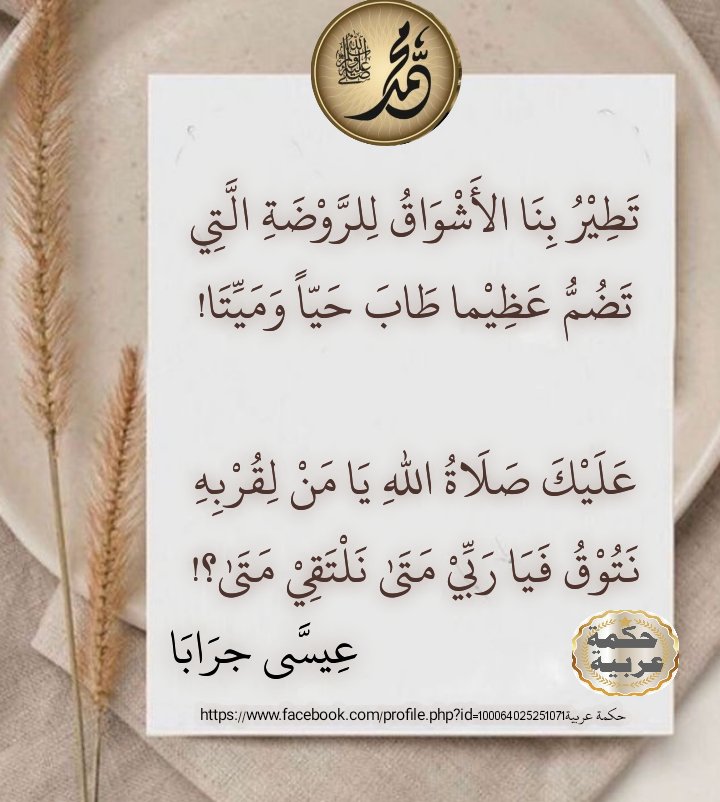 محمد
صلى الله عليه وسلم
تَطِيْرُ بِنَا الأَشْوَاقُ لِلرَّوْضَةِ الَّتِي
تَضُمُّ عَظِيْما طَابَ حَيّاً وَمَيِّتَا!
عَلَيْكَ صَلَاةُ اللهِ يَا مَنْ لِقُرْبِهِ
نَتُوْقُ فَيَا رَبِّيْ مَتَىٰ نَلْتَقِيْ مَتَىٰ؟!
عِيسَّى جرَابَا
حكمة
عربية
حكمة عربيةhttps://www.facebook.com/profile.php?id=100064025251071